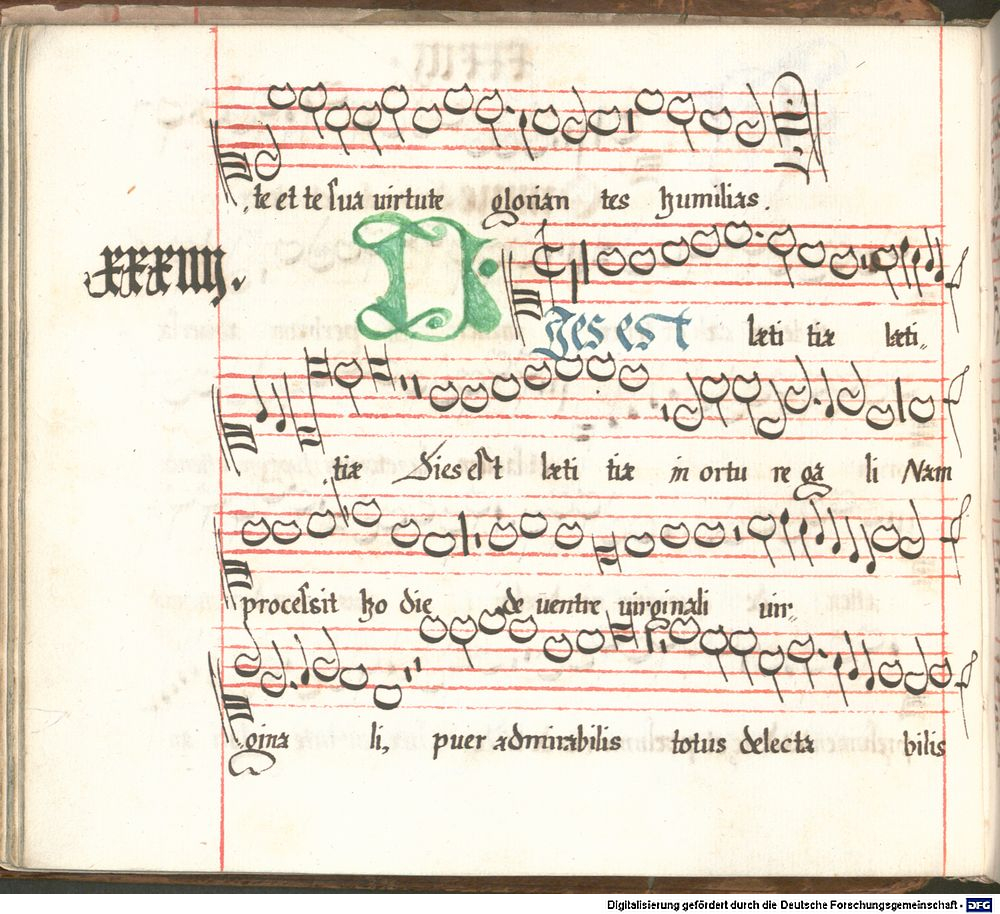 te et te sua uirtute glorian tes humilias.
xxxiiij.
Dies est læti tiæ læti„
tiæ Dies est læti tiæ in ortu re ga li Nam
processit ho die de uentre uirginali uir„
„gina li, puer admirabilis totus delecta bilis
Digitalisierung gefördert durch die Deutsche Forschungsgemeinschaft - DFG